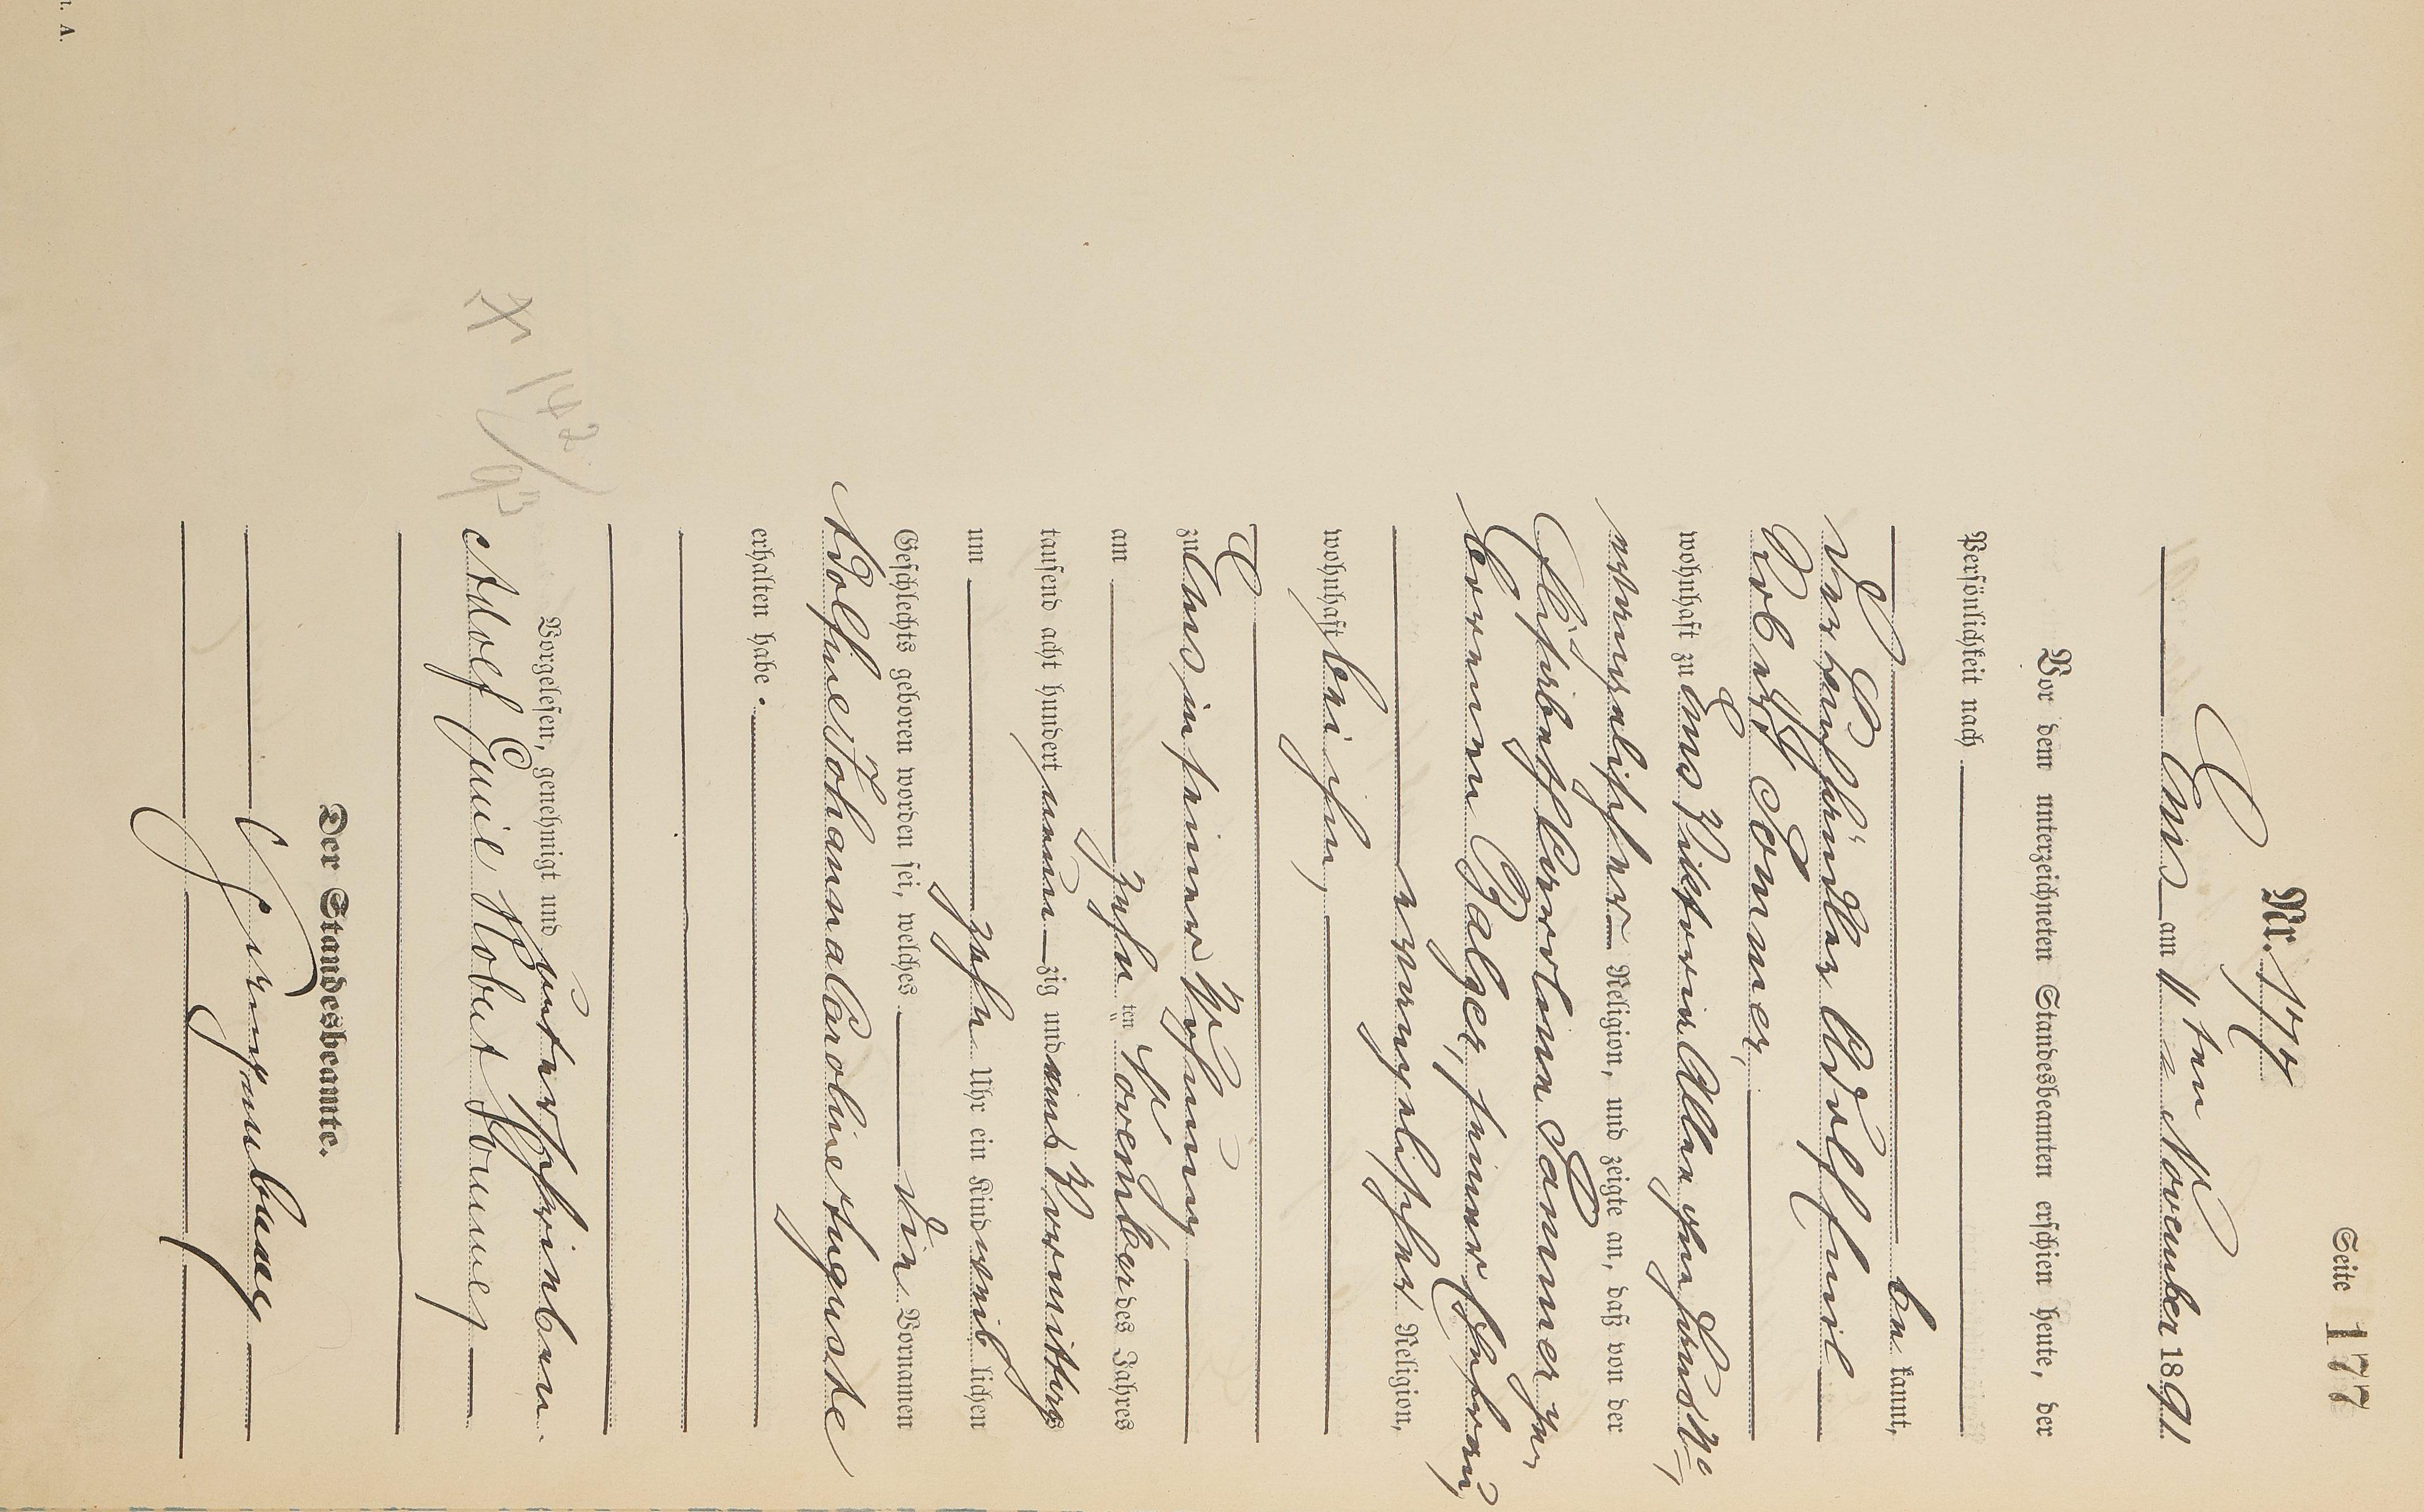 Seite 177
Nr. 177
Ems am 11ten November 1891
Vor dem unterzeichneten Standesbeamten erschien heute, der
Persönlichkeit nach
be kannt,
der Kaufhändler Adolf Emil
Robert Sommer,
wohnhaft zu Ems Viktoria Allee
evangelischer Religion, und zeigte an, daß von der
Elisabeth Carolina Sommer ge-
borenen Balzer, seiner Ehefrau,
evangelischer Religion,
wohnhaft bei ihm,
zu Ems in seiner Wohnung
am zehn ten November des Jahres
tausend acht hundert neun zig und eins Vormittags
um zehn Uhr ein Kind weib lichen
Geschlechts geboren worden sei, welches die Vornamen
Adolfine Johanna Caroline Auguste
erhalten habe.
Vorgelesen, genehmigt und unterschrieben.
Adolf Emil Robert Sommer
Der Standesbeamte.
n. A.